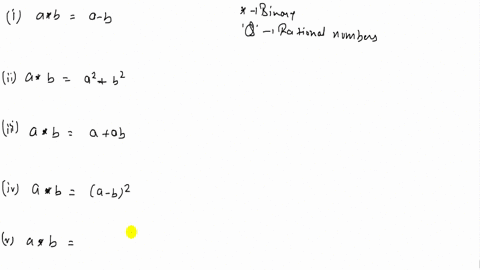 (i) a*b = a-b
*→Binary
'Q' → Rational numbers
(ii) a*b = a²+b²
(iii) a*b = a+ab
(iv) a*b = (a-b)²
(v) a*b =